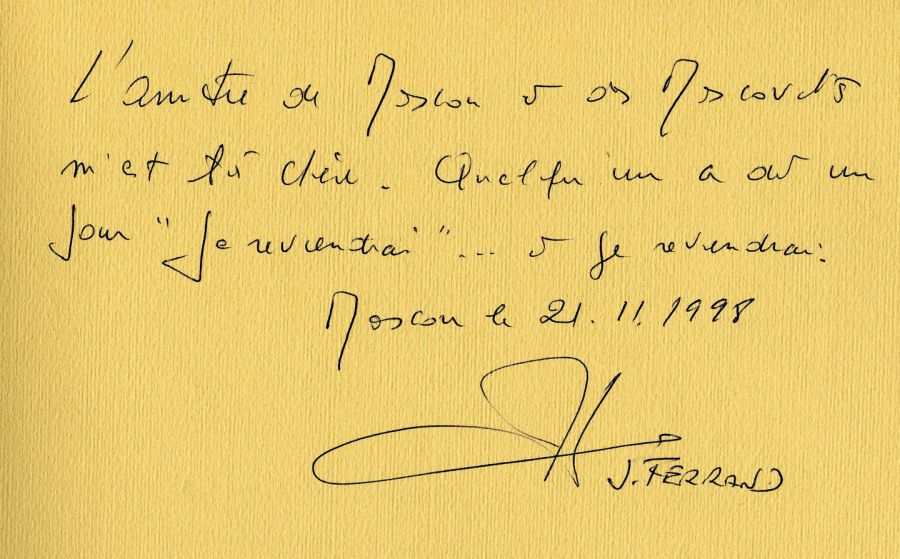 L'amitié de Moscou et des Moscovites
m'est très chère. Quelqu'un a dit un
jour "Je reviendrai"... et Je reviendrai.
Moscou le 21.11.1998
J. FERRAND